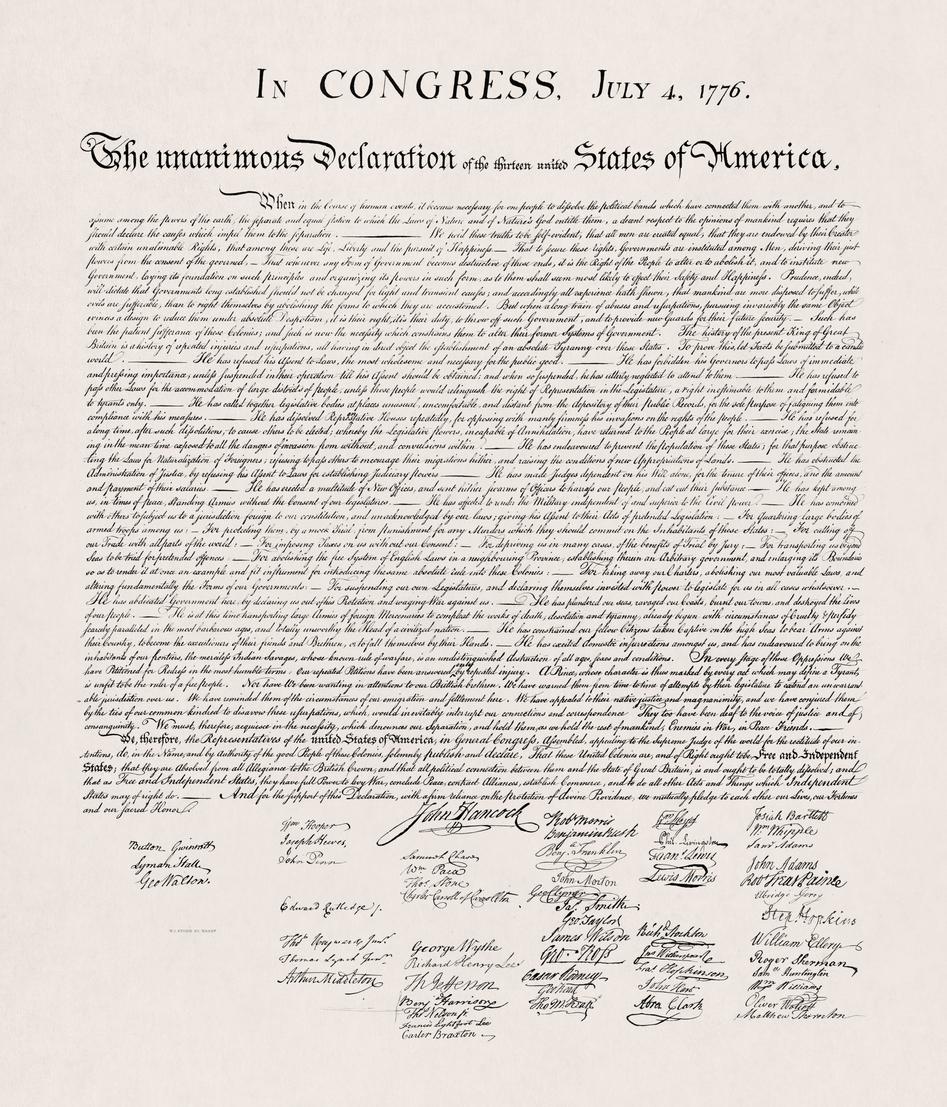 In CONGRESS, July 4, 1776.
The unanimous Declaration of the thirteen united States of America,
When in the Course of human events, it becomes necessary for one people to dissolve the political bands which have connected them with another, and to
assume among the powers of the earth, the separate and equal station to which the Laws of Nature and of Nature's God entitle them, a decent respect to the opinions of mankind requires that they
should declare the causes which impel them to the separation. — We hold these truths to be self-evident, that all men are created equal, that they are endowed by their Creator
with certain unalienable Rights, that among these are Life, Liberty and the pursuit of Happiness — That to secure these rights, Governments are instituted among Men, deriving their just
powers from the consent of the governed, — That whenever any Form of Government becomes destructive of these ends, it is the Right of the People to alter or to abolish it, and to institute new
Government, laying its foundation on such principles and organizing its powers in such form, as to them shall seem most likely to effect their Safety and Happiness. Prudence, indeed,
will dictate that Governments long established should not be changed for light and transient causes; and accordingly all experience hath shewn, that mankind are more disposed to suffer, while
evils are sufferable, than to right themselves by abolishing the forms to which they are accustomed. But when a long train of abuses and usurpations, pursuing invariably the same Object
evinces a design to reduce them under absolute Despotism, it is their right, it is their duty, to throw off such Government, and to provide new Guards for their future security. — Such has
been the patient sufferance of these Colonies; and such is now the necessity which constrains them to alter their former Systems of Government. The history of the present King of Great
Britain is a history of repeated injuries and usurpations, all having in direct object the establishment of an absolute Tyranny over these States. To prove this, let Facts be submitted to a candid
world. — He has refused his Assent to Laws, the most wholesome and necessary for the public good. — He has forbidden his Governors to pass Laws of immediate
and pressing importance, unless suspended in their operation till his Assent should be obtained; and when so suspended, he has utterly neglected to attend to them. — He has refused to
pass other Laws for the accommodation of large districts of people, unless those people would relinquish the right of Representation in the Legislature, a right inestimable to them and formidable
to tyrants only. — He has called together legislative bodies at places unusual, uncomfortable, and distant from the depository of their public Records, for the sole purpose of fatiguing them into
compliance with his measures. — He has dissolved Representative Houses repeatedly, for opposing with manly firmness his invasions on the rights of the people. — He has refused for
a long time, after such dissolutions, to cause others to be elected; whereby the Legislative powers, incapable of Annihilation, have returned to the People at large for their exercise; the State remain
ing in the mean time exposed to all the dangers of invasion from without, and convulsions within. — He has endeavoured to prevent the population of these States; for that purpose obstruc
ting the Laws for Naturalization of Foreigners; refusing to pass others to encourage their migrations hither, and raising the conditions of new Appropriations of Lands. — He has obstructed the
Administration of Justice, by refusing his Assent to Laws for establishing Judiciary powers. — He has made Judges dependent on his Will alone, for the tenure of their offices, and the amount
and payment of their salaries. — He has erected a multitude of New Offices, and sent hither swarms of Officers to harrass our people, and eat out their substance. — He has kept among
us, in times of peace, Standing Armies without the Consent of our legislatures. — He has affected to render the Military independent of and superior to the Civil power. — He has combined
with others to subject us to a jurisdiction foreign to our constitution, and unacknowledged by our laws; giving his Assent to their Acts of pretended Legislation: — For Quartering large bodies of
armed troops among us: — For protecting them, by a mock Trial, from punishment for any Murders which they should commit on the Inhabitants of these States: — For cutting off
our Trade with all parts of the world: — For imposing Taxes on us without our Consent: — For depriving us in many cases, of the benefits of Trial by Jury: — For transporting us beyond
Seas to be tried for pretended offences — For abolishing the free System of English Laws in a neighbouring Province, establishing therein an Arbitrary government, and enlarging its Boundaries
so as to render it at once an example and fit instrument for introducing the same absolute rule into these Colonies: — For taking away our Charters, abolishing our most valuable Laws, and
altering fundamentally the Forms of our Governments: — For suspending our own Legislatures, and declaring themselves invested with power to legislate for us in all cases whatsoever. —
He has abdicated Government here, by declaring us out of his Protection and waging War against us. — He has plundered our seas, ravaged our Coasts, burnt our towns, and destroyed the lives
of our people. — He is at this time transporting large Armies of foreign Mercenaries to compleat the works of death, desolation and tyranny, already begun with circumstances of Cruelty & perfidy
scarcely paralleled in the most barbarous ages, and totally unworthy the Head of a civilized nation. — He has constrained our fellow Citizens taken Captive on the high Seas to bear Arms against
their Country, to become the executioners of their friends and Brethren, or to fall themselves by their Hands. — He has excited domestic insurrections amongst us, and has endeavoured to bring on the
inhabitants of our frontiers, the merciless Indian Savages, whose known rule of warfare, is an undistinguished destruction of all ages, sexes and conditions. In every stage of these Oppressions We
have Petitioned for Redress in the most humble terms: Our repeated Petitions have been answered only by repeated injury. A Prince, whose character is thus marked by every act which may define a Tyrant,
is unfit to be the ruler of a free people. Nor have We been wanting in attentions to our Brittish brethren. We have warned them from time to time of attempts by their legislature to extend an unwarrant
able jurisdiction over us. We have reminded them of the circumstances of our emigration and settlement here. We have appealed to their native justice and magnanimity, and we have conjured them
by the ties of our common kindred to disavow these usurpations, which, would inevitably interrupt our connections and correspondence They too have been deaf to the voice of justice and of
consanguinity. We must, therefore, acquiesce in the necessity, which denounces our Separation, and hold them, as we hold the rest of mankind, Enemies in War, in Peace Friends. —
We, therefore, the Representatives of the united States of America, in General Congress, Assembled, appealing to the Supreme Judge of the world for the rectitude of our in-
tentions, do, in the Name, and by Authority of the good People of these Colonies, solemnly publish and declare, That these United Colonies are, and of Right ought to be Free and Independent
States; that they are Absolved from all Allegiance to the British Crown, and that all political connection between them and the State of Great Britain, is and ought to be totally dissolved; and
that as Free and Independent States, they have full Power to levy War, conclude Peace, contract Alliances, establish Commerce, and to do all other Acts and Things which Independent
States may of right do. — And for the support of this Declaration, with a firm reliance on the protection of divine Providence, we mutually pledge to each other our Lives, our Fortunes
and our sacred Honor.
Button Gwinnett
Lyman Hall
Geo Walton.
Wm Hooper
Joseph Hewes,
John Penn
Edward Rutledge /.
Thos Heyward Junr.
Thomas Lynch Junr.
Arthur Middleton
John Hancock
Samuel Chase
Wm Paca
Thos Stone
Charles Carroll of Carrollton
George Wythe
Richard Henry Lee
Th Jefferson
Benj Harrison
Thos Nelson jr.
Francis Lightfoot Lee
Carter Braxton
Robt Morris
Benjamin Rush
Benj. Franklin
John Morton
Geo Clymer
Jas. Smith
Geo. Taylor
James Wilson
Geo. Ross
Caesar Rodney
Geo Read
Tho M:Kean
Wm Floyd
Phil. Livingston
Frans. Lewis
Lewis Morris
Richd. Stockton
Jno Witherspoon
Fras. Hopkinson
John Hart
Abra Clark
Josiah Bartlett
Wm Whipple
Saml Adams
John Adams
Robt Treat Paine
Elbridge Gerry
Step. Hopkins
William Ellery
Roger Sherman
Saml Huntington
Wm Williams
Oliver Wolcott
Matthew Thornton